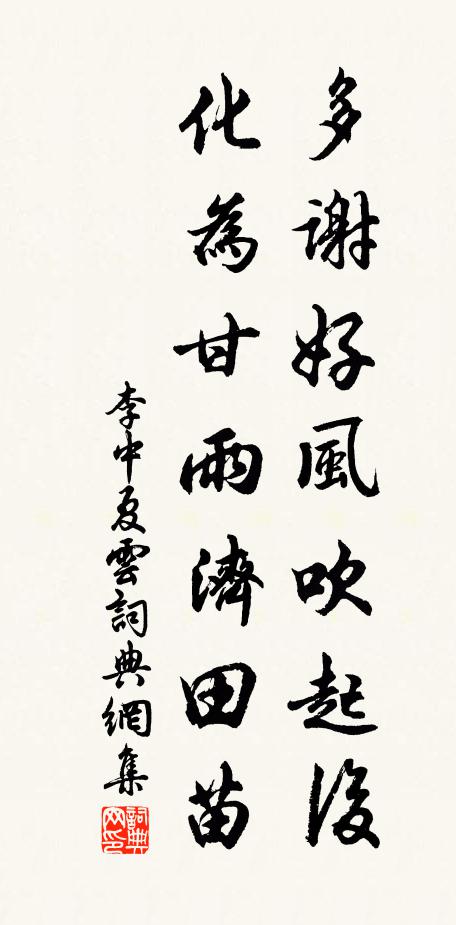 多謝好風吹起後
化為甘雨濟田苗
李中夏雲詞典網集
詞典网印